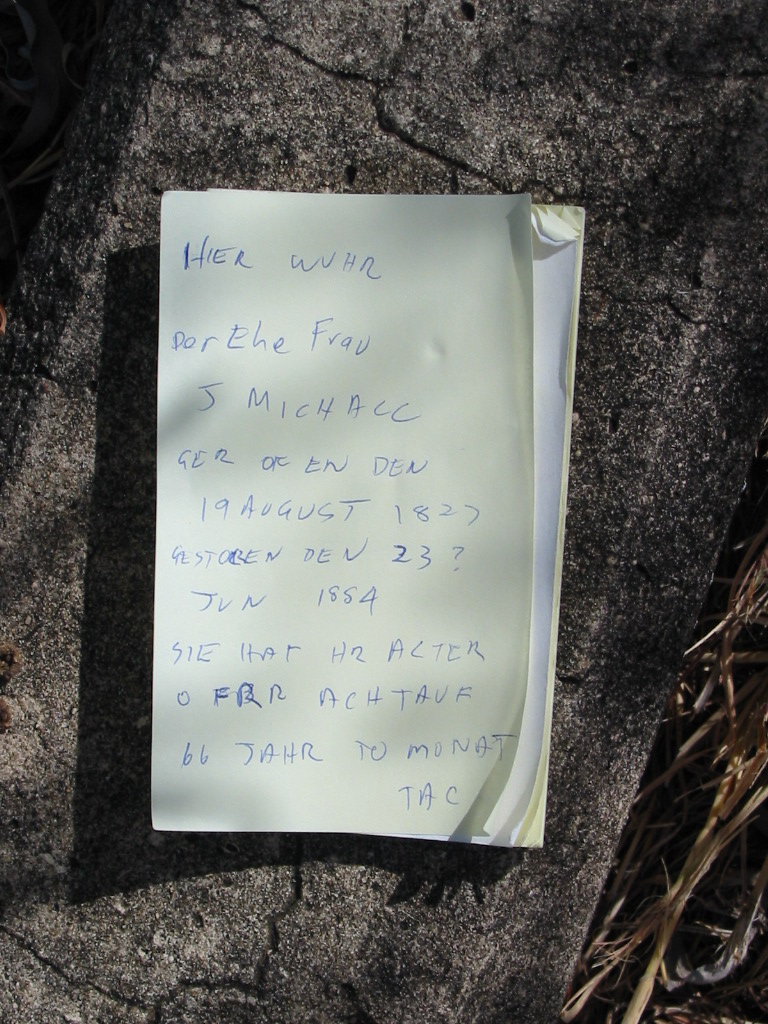 HIER WUHR
Dor Ehe Frau
J MICHACC
GER OF EN DEN
19 AUGUST 1827
GESTOBEN DEN 23?
JUN 1884
SIE HAT HR ACTER
O FRR ACHTAUF
66 JAHR TO MONAT
TAC